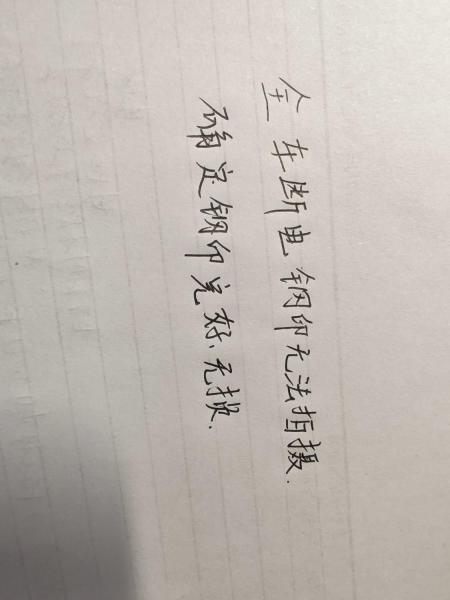 全车断电钢印无法拍摄.
确定钢印完好、无损.